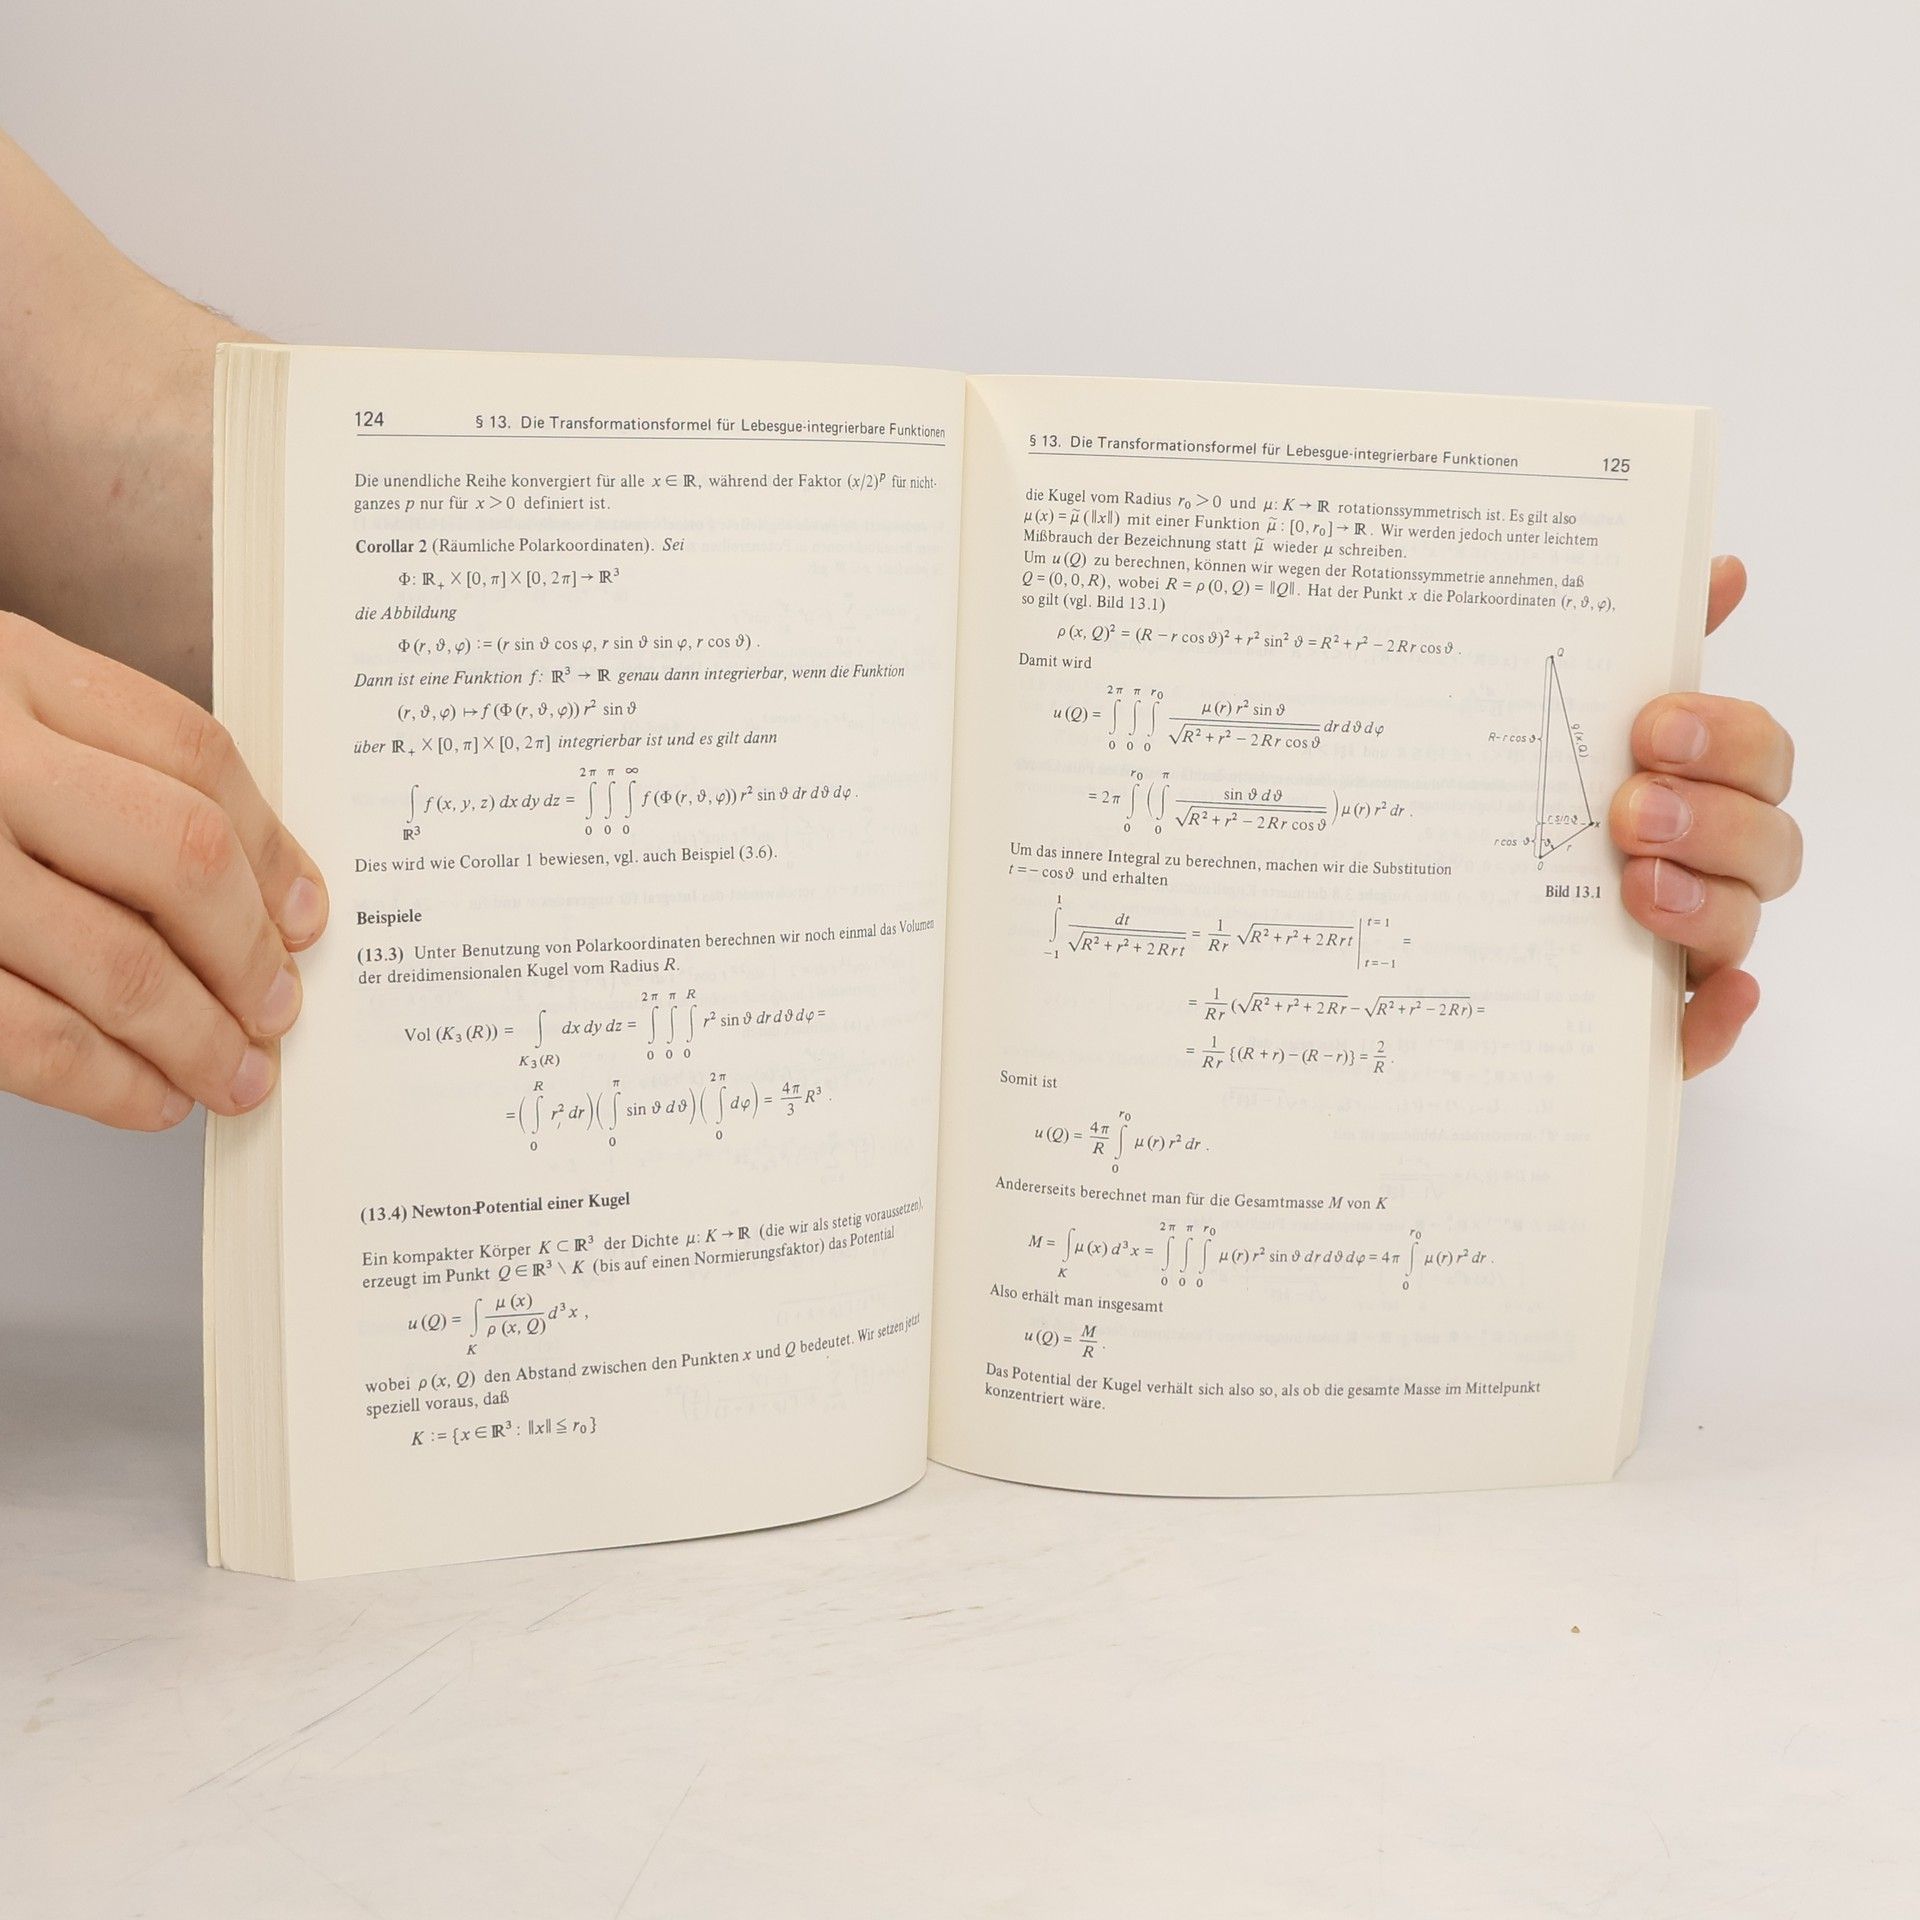 124 § 13. Die Transformationsformel für Lebesgue-integrierbare Funktionen
Die unendliche Reihe konvergiert für alle x ∈ ℝ, während der Faktor (x/2)^p für nicht-
ganzes p nur für x > 0 definiert ist.
Corollar 2 (Räumliche Polarkoordinaten). Sei
Φ: ℝ₊ × [0, π] × [0, 2π] → ℝ³
die Abbildung
Φ(r, ϑ, φ) := (r sin ϑ cos φ, r sin ϑ sin φ, r cos ϑ) .
Dann ist eine Funktion f: ℝ³ → ℝ genau dann integrierbar, wenn die Funktion
(r, ϑ, φ) ↦ f (Φ (r, ϑ, φ)) r² sin ϑ
über ℝ₊ × [0, π] × [0, 2π] integrierbar ist und es gilt dann
∫_{ℝ³} f (x, y, z) dx dy dz = ∫_0^{2π} ∫_0^π ∫_0^∞ f (Φ (r, ϑ, φ)) r² sin ϑ dr dϑ dφ .
Dies wird wie Corollar 1 bewiesen, vgl. auch Beispiel (3.6).
Beispiele
(13.3) Unter Benutzung von Polarkoordinaten berechnen wir noch einmal das Volumen
der dreidimensionalen Kugel vom Radius R.
Vol (K₃ (R)) = ∫_{K₃(R)} dx dy dz = ∫_0^{2π} ∫_0^π ∫_0^R r² sin ϑ dr dϑ dφ =
= (∫_0^R r² dr) (∫_0^π sin ϑ dϑ) (∫_0^{2π} dφ) = 4π/3 R³ .
(13.4) Newton-Potential einer Kugel
Ein kompakter Körper K ⊂ ℝ³ der Dichte μ: K → ℝ (die wir als stetig voraussetzen),
erzeugt im Punkt Q ∈ ℝ³ \ K (bis auf einen Normierungsfaktor) das Potential
u (Q) = ∫_K μ (x)/ρ (x, Q) d³x ,
wobei ρ (x, Q) den Abstand zwischen den Punkten x und Q bedeutet. Wir setzen jetzt
speziell voraus, daß
K := {x ∈ ℝ³ : ‖x‖ ≦ r₀}
§ 13. Die Transformationsformel für Lebesgue-integrierbare Funktionen 125
die Kugel vom Radius r₀ > 0 und μ: K → ℝ rotationssymmetrisch ist. Es gilt also
μ(x) = μ̃ (‖x‖) mit einer Funktion μ̃ : [0, r₀] → ℝ. Wir werden jedoch unter leichtem
Mißbrauch der Bezeichnung statt μ̃ wieder μ schreiben.
Um u (Q) zu berechnen, können wir wegen der Rotationssymmetrie annehmen, daß
Q = (0, 0, R), wobei R = ρ (0, Q) = ‖Q‖. Hat der Punkt x die Polarkoordinaten (r, ϑ, φ),
so gilt (vgl. Bild 13.1)
ρ (x, Q)² = (R − r cos ϑ)² + r² sin² ϑ = R² + r² − 2 Rr cos ϑ .
Damit wird
u (Q) = ∫_0^{2π} ∫_0^π ∫_0^{r₀} μ (r) r² sin ϑ / √(R² + r² − 2 Rr cos ϑ) dr dϑ dφ
= 2π ∫_0^{r₀} (∫_0^π sin ϑ dϑ / √(R² + r² − 2 Rr cos ϑ)) μ (r) r² dr .
Um das innere Integral zu berechnen, machen wir die Substitution
t = − cos ϑ und erhalten
∫_{−1}^1 dt / √(R² + r² + 2 Rrt) = 1/Rr √(R² + r² + 2 Rrt) |_{t=−1}^{t=1} =
= 1/Rr (√(R² + r² + 2 Rr) − √(R² + r² − 2 Rr)) =
= 1/Rr {(R + r) − (R − r)} = 2/R .
Somit ist
u (Q) = 4π/R ∫_0^{r₀} μ (r) r² dr .
Andererseits berechnet man für die Gesamtmasse M von K
M = ∫_K μ (x) d³x = ∫_0^{2π} ∫_0^π ∫_0^{r₀} μ (r) r² sin ϑ dr dϑ dφ = 4π ∫_0^{r₀} μ (r) r² dr .
Also erhält man insgesamt
u (Q) = M/R .
Das Potential der Kugel verhält sich also so, als ob die gesamte Masse im Mittelpunkt
konzentriert wäre.
Q
R−r cos ϑ
ρ(x,Q)
r sin ϑ
x
r cos ϑ
ϑ
r
0
Bild 13.1